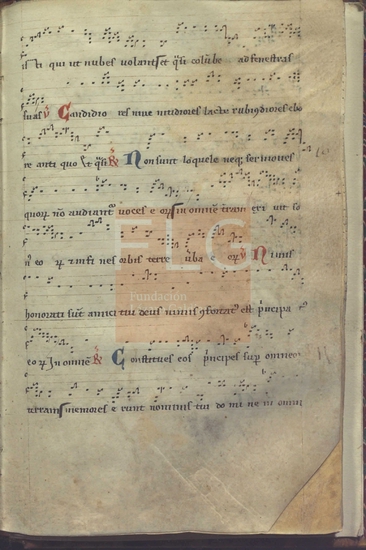 isti qui ut nubes volant et qsi colube ad fenestras
suas V Candidio res nive nitidiores lacte rubicdiores ebo
re anti quo Et qsi R Non sunt loquele neq; sermones
quoru no audiant voces e oru In omne tram exi vit so
n eo ru et in fi nes orbis terre vba e oru V Nimis
honorati sut amici tui deus nimis gfortat est pncipa
eo ru In omne R Constitues eos pncipes sup omnem
terram memores e runt nominis tui do mi ne in omni
FLG
Fundación